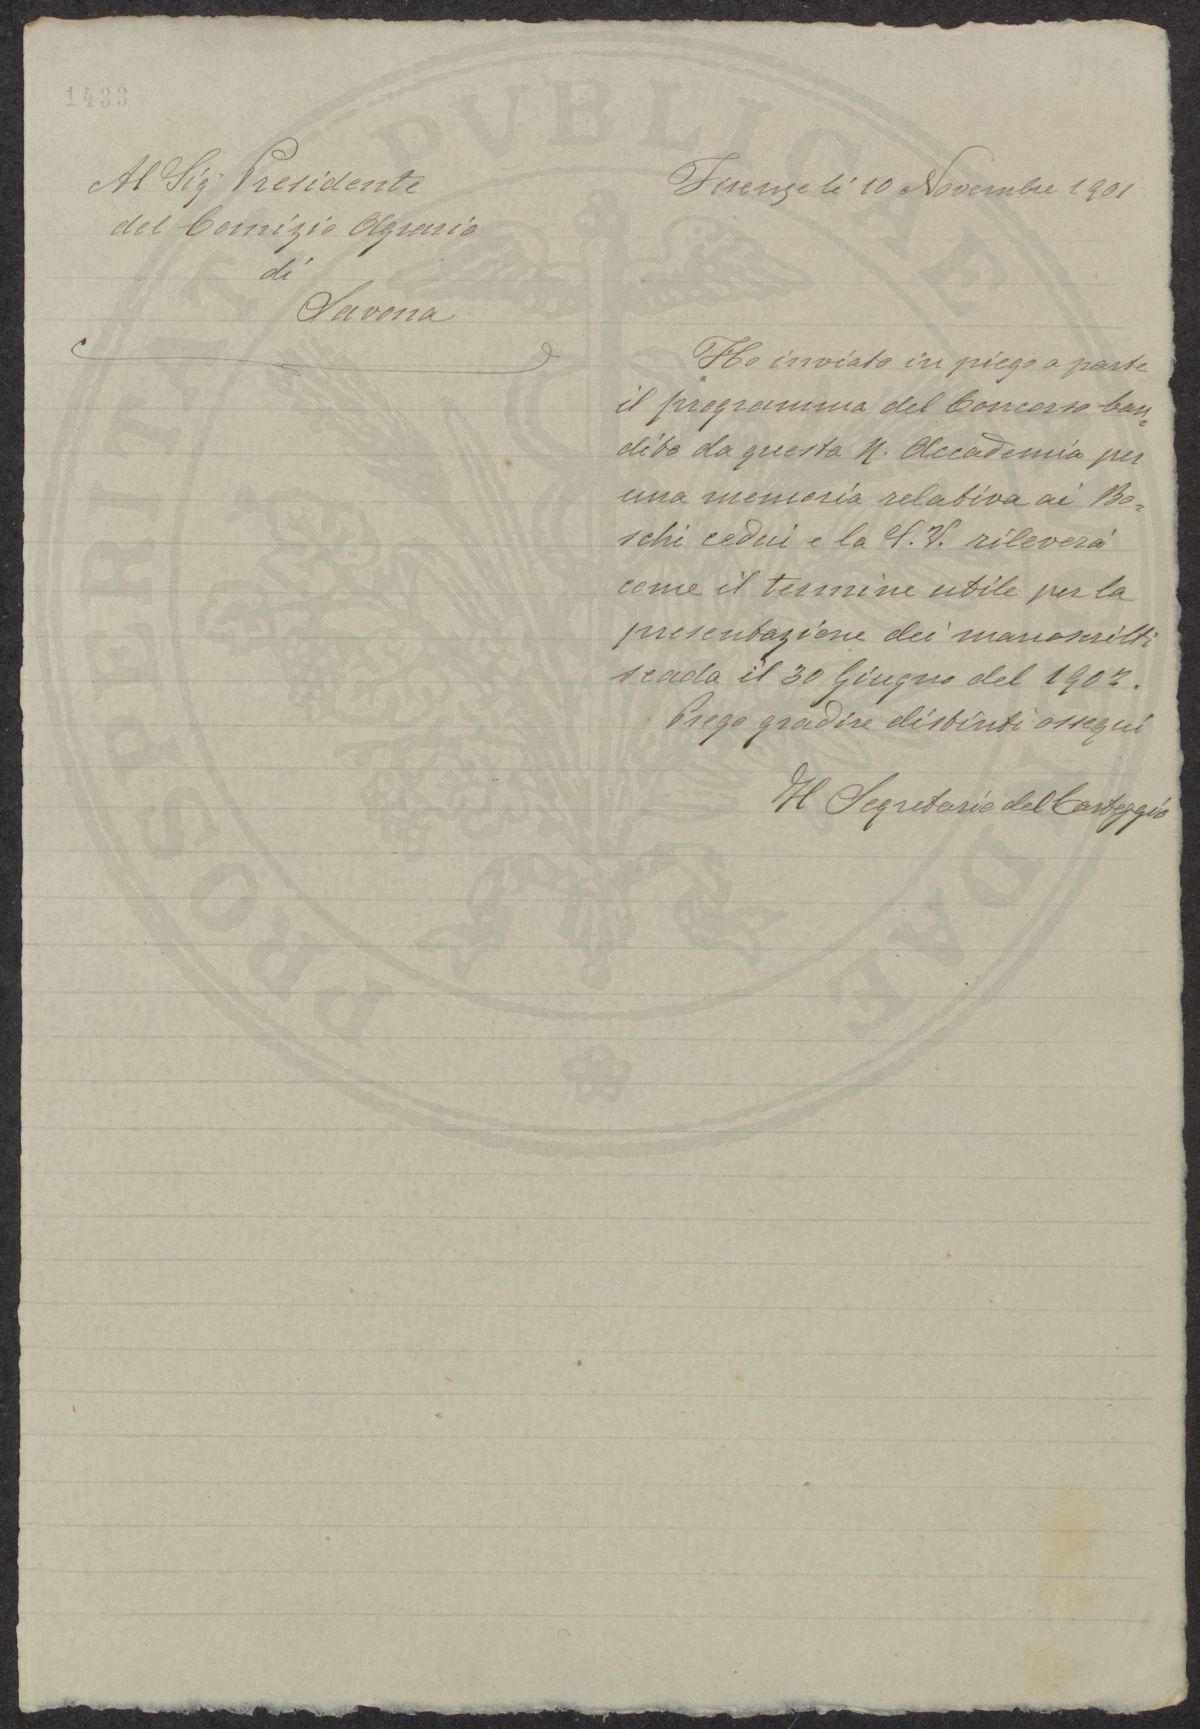 1433
Al Sigr Presidente
del Comizio Agrario
di
Savona
Firenze li 10 Novembre 1901
Ho inviato in piego a parte
il programma del Concorso ban=
dito da questa R. Accademia per
una memoria relativa ai Bo=
schi cedui e la S. V. rileverà
come il termine utile per la
presentazione dei manoscritti
scada il 30 Giugno del 1902.
Prego gradire distinti ossequi
Il Segretario del Carteggio
PROSPERITATI PVBLICAE AVGENDAE